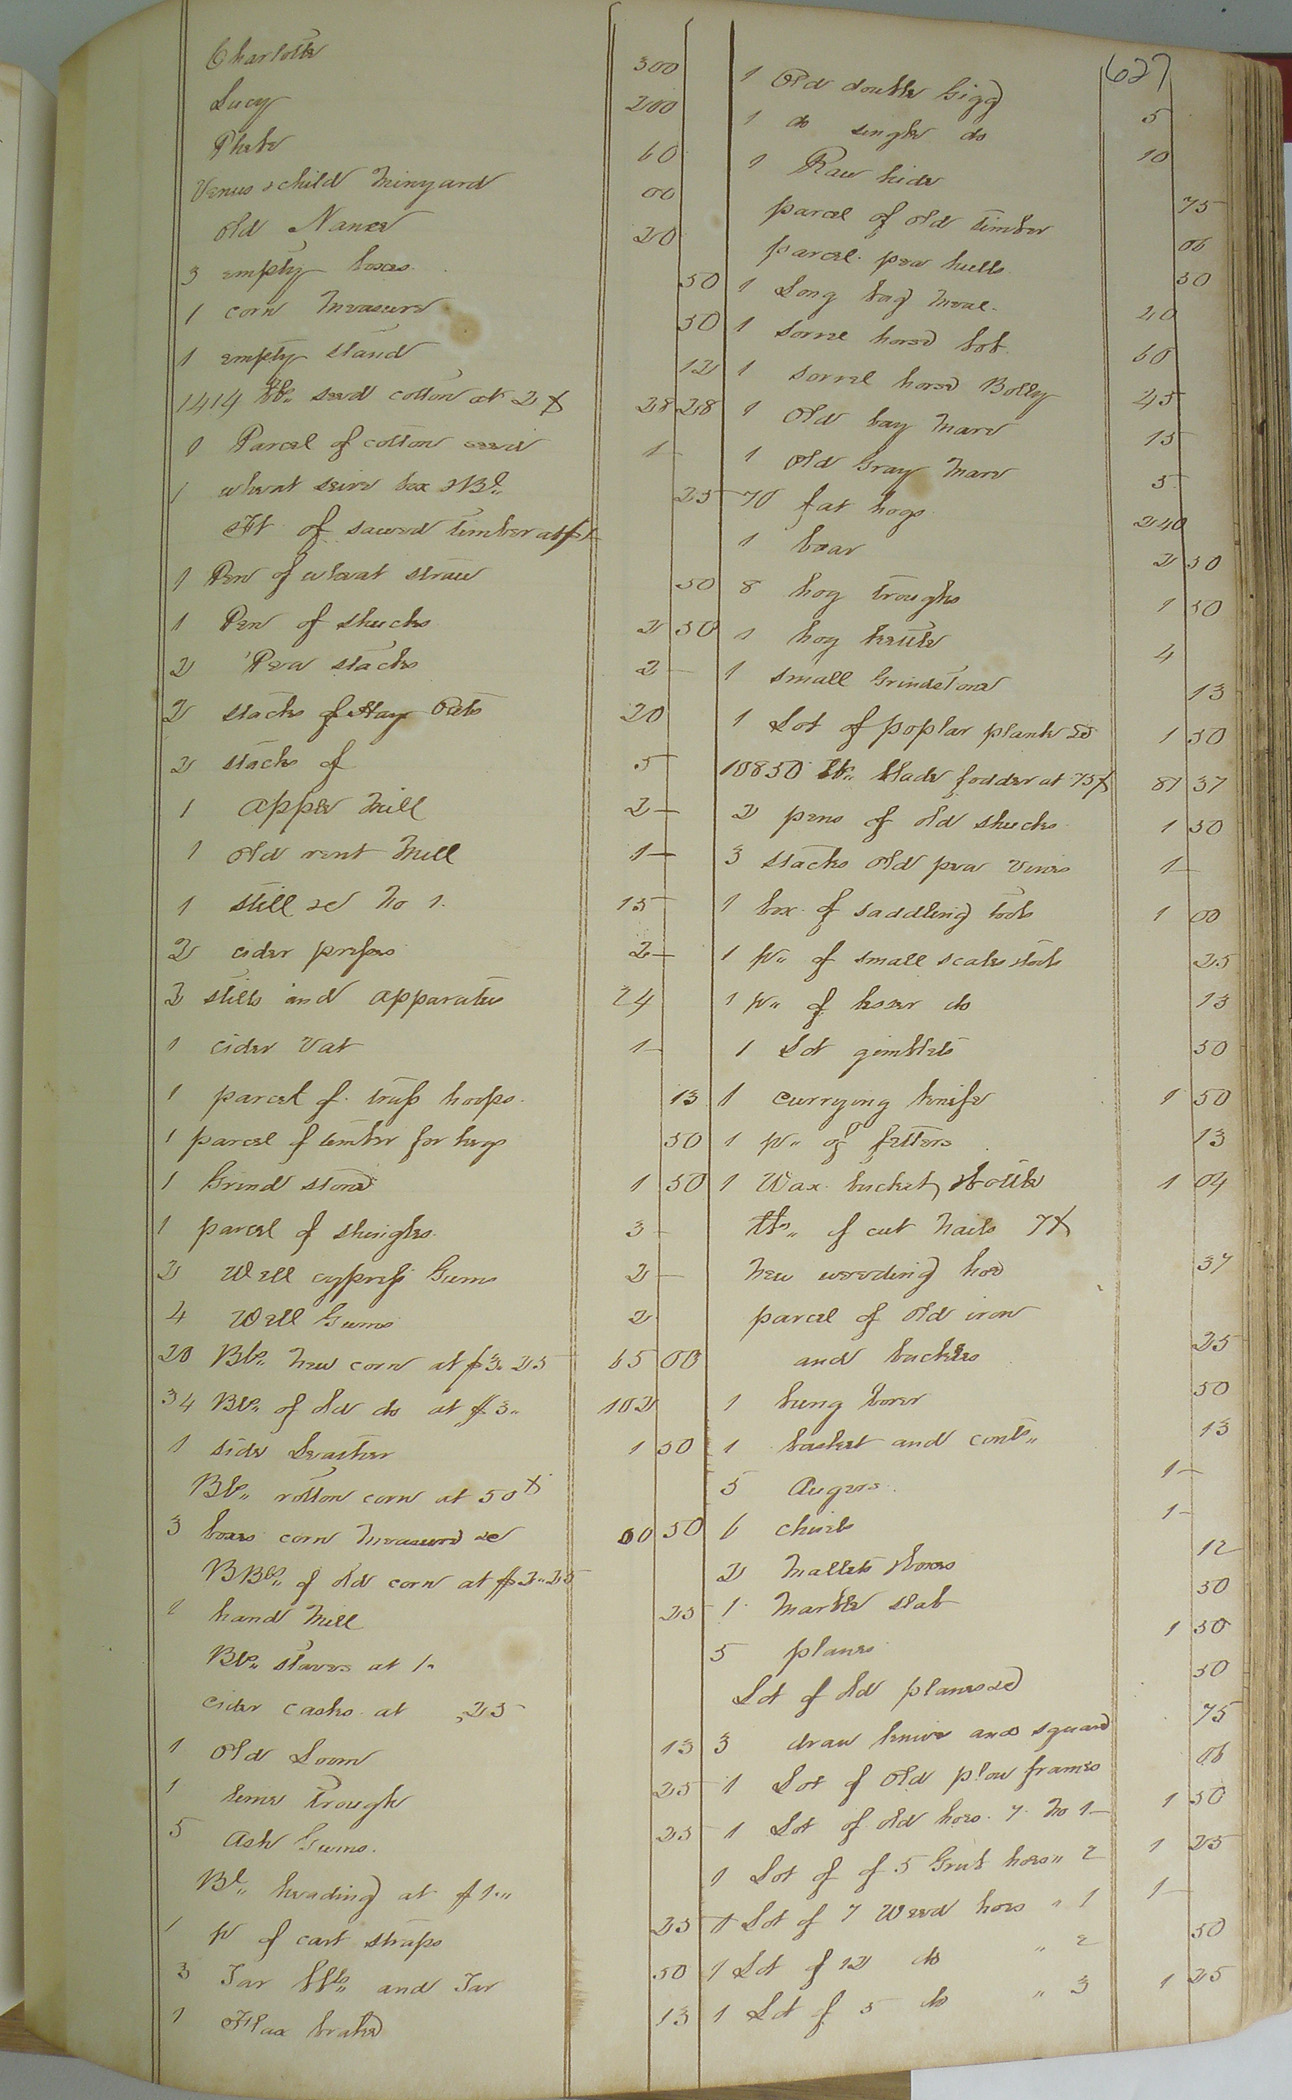 (627
Charlotte 300
Lucy 200
Phebe 60
Venus & child Minyard 00
old Nance 20
3 empty boxes 50
1 corn Measure 50
1 empty stand 12
1414 lbs. seed cotton at 2 ¢ 28 28
1 Parcel of cotton seed 1 -
1 wheat seive box & Bl. 25
Ft of sawed timber at $1-
1 Pen of wheat straw 50
1 Pen of shucks 2 50
2 Pea stacks 2 -
2 stacks of Hay Oats 20
2 stacks of 5
1 apple Mill 2 -
1 old rent Mill 1 -
1 still &c No 1. 15
2 cider presses 2 -
2 stills and apparatus 24
1 cider Vat 1 -
1 parcel of truss hoops. 13
1 parcel of timber for kegs 50
1 Grind stone 1 50
1 parcel of shingles 3 -
2 Well cypress Gums 2 -
4 Well Gums 2
20 Bls. New corn at $3.25 65 00
34 Bls. of old do at $3. 102
1 side Leather 1 50
Bls. rotton corn at 50 ¢
3 boxes corn Measure &c 00 50
BBls. of old corn at $2.25
1 hand Mill 25
Bls. staves at 1.
cider casks at .25
1 Old Loom 13
1 lime Trough 25
5 Ash Gums. 25
Bl. heading at $1.
1 pr of cart straps 25
3 Tar bbls. and Tar 50
1 Flax brake 13
1 Old double Gigg 5
1 do single do 10
1 Raw hide 75
parcel of old timber 06
parcel pea hulls 50
1 Long bag Meal. 20
1 sorrel horse bob 60
1 sorrel horse Bolly 45
1 Old bay Mare 15
1 Old Gray Mare 5
70 fat hogs 240
1 boar 2 50
8 hog troughs 1 50
1 hog kettle 4
1 small Grindstone 13
1 Lot of poplar plank &c 1 50
10850 lbs. blade fodder at 75 ¢ 81 37
2 pens of old shucks 1 50
3 stacks old pea vines 1 -
1 box of saddling tools 1 00
1 pr. of small scales 25
1 pr. of lesser do 13
1 Lot gimblets 50
1 currying knife 1 50
1 pr. of fetters 13
1 Wax bucket, & bottle 1 04
lbs. of cut Nails 7 ¢
New weeding hoe 37
parcel of old iron
and buckles 25
1 bung borer 50
1 basket and conts. 13
5 Augers. 1 -
6 chisels 1 -
2 Mallets & boxes 12
1 Marble slab 50
5 planes 1 50
Lot of old planes &c 50
3 draw knives and square 75
1 Lot of Old plow frames 06
1 Lot of old hoes. 7. No 1 - 1 50
1 Lot of of 5 Grub hoes " 2 1 25
1 Lot of 7 Weed hoes " 1 1 -
1 Lot of 12 do " 2 50
1 Lot of 5 do " 3 1 25